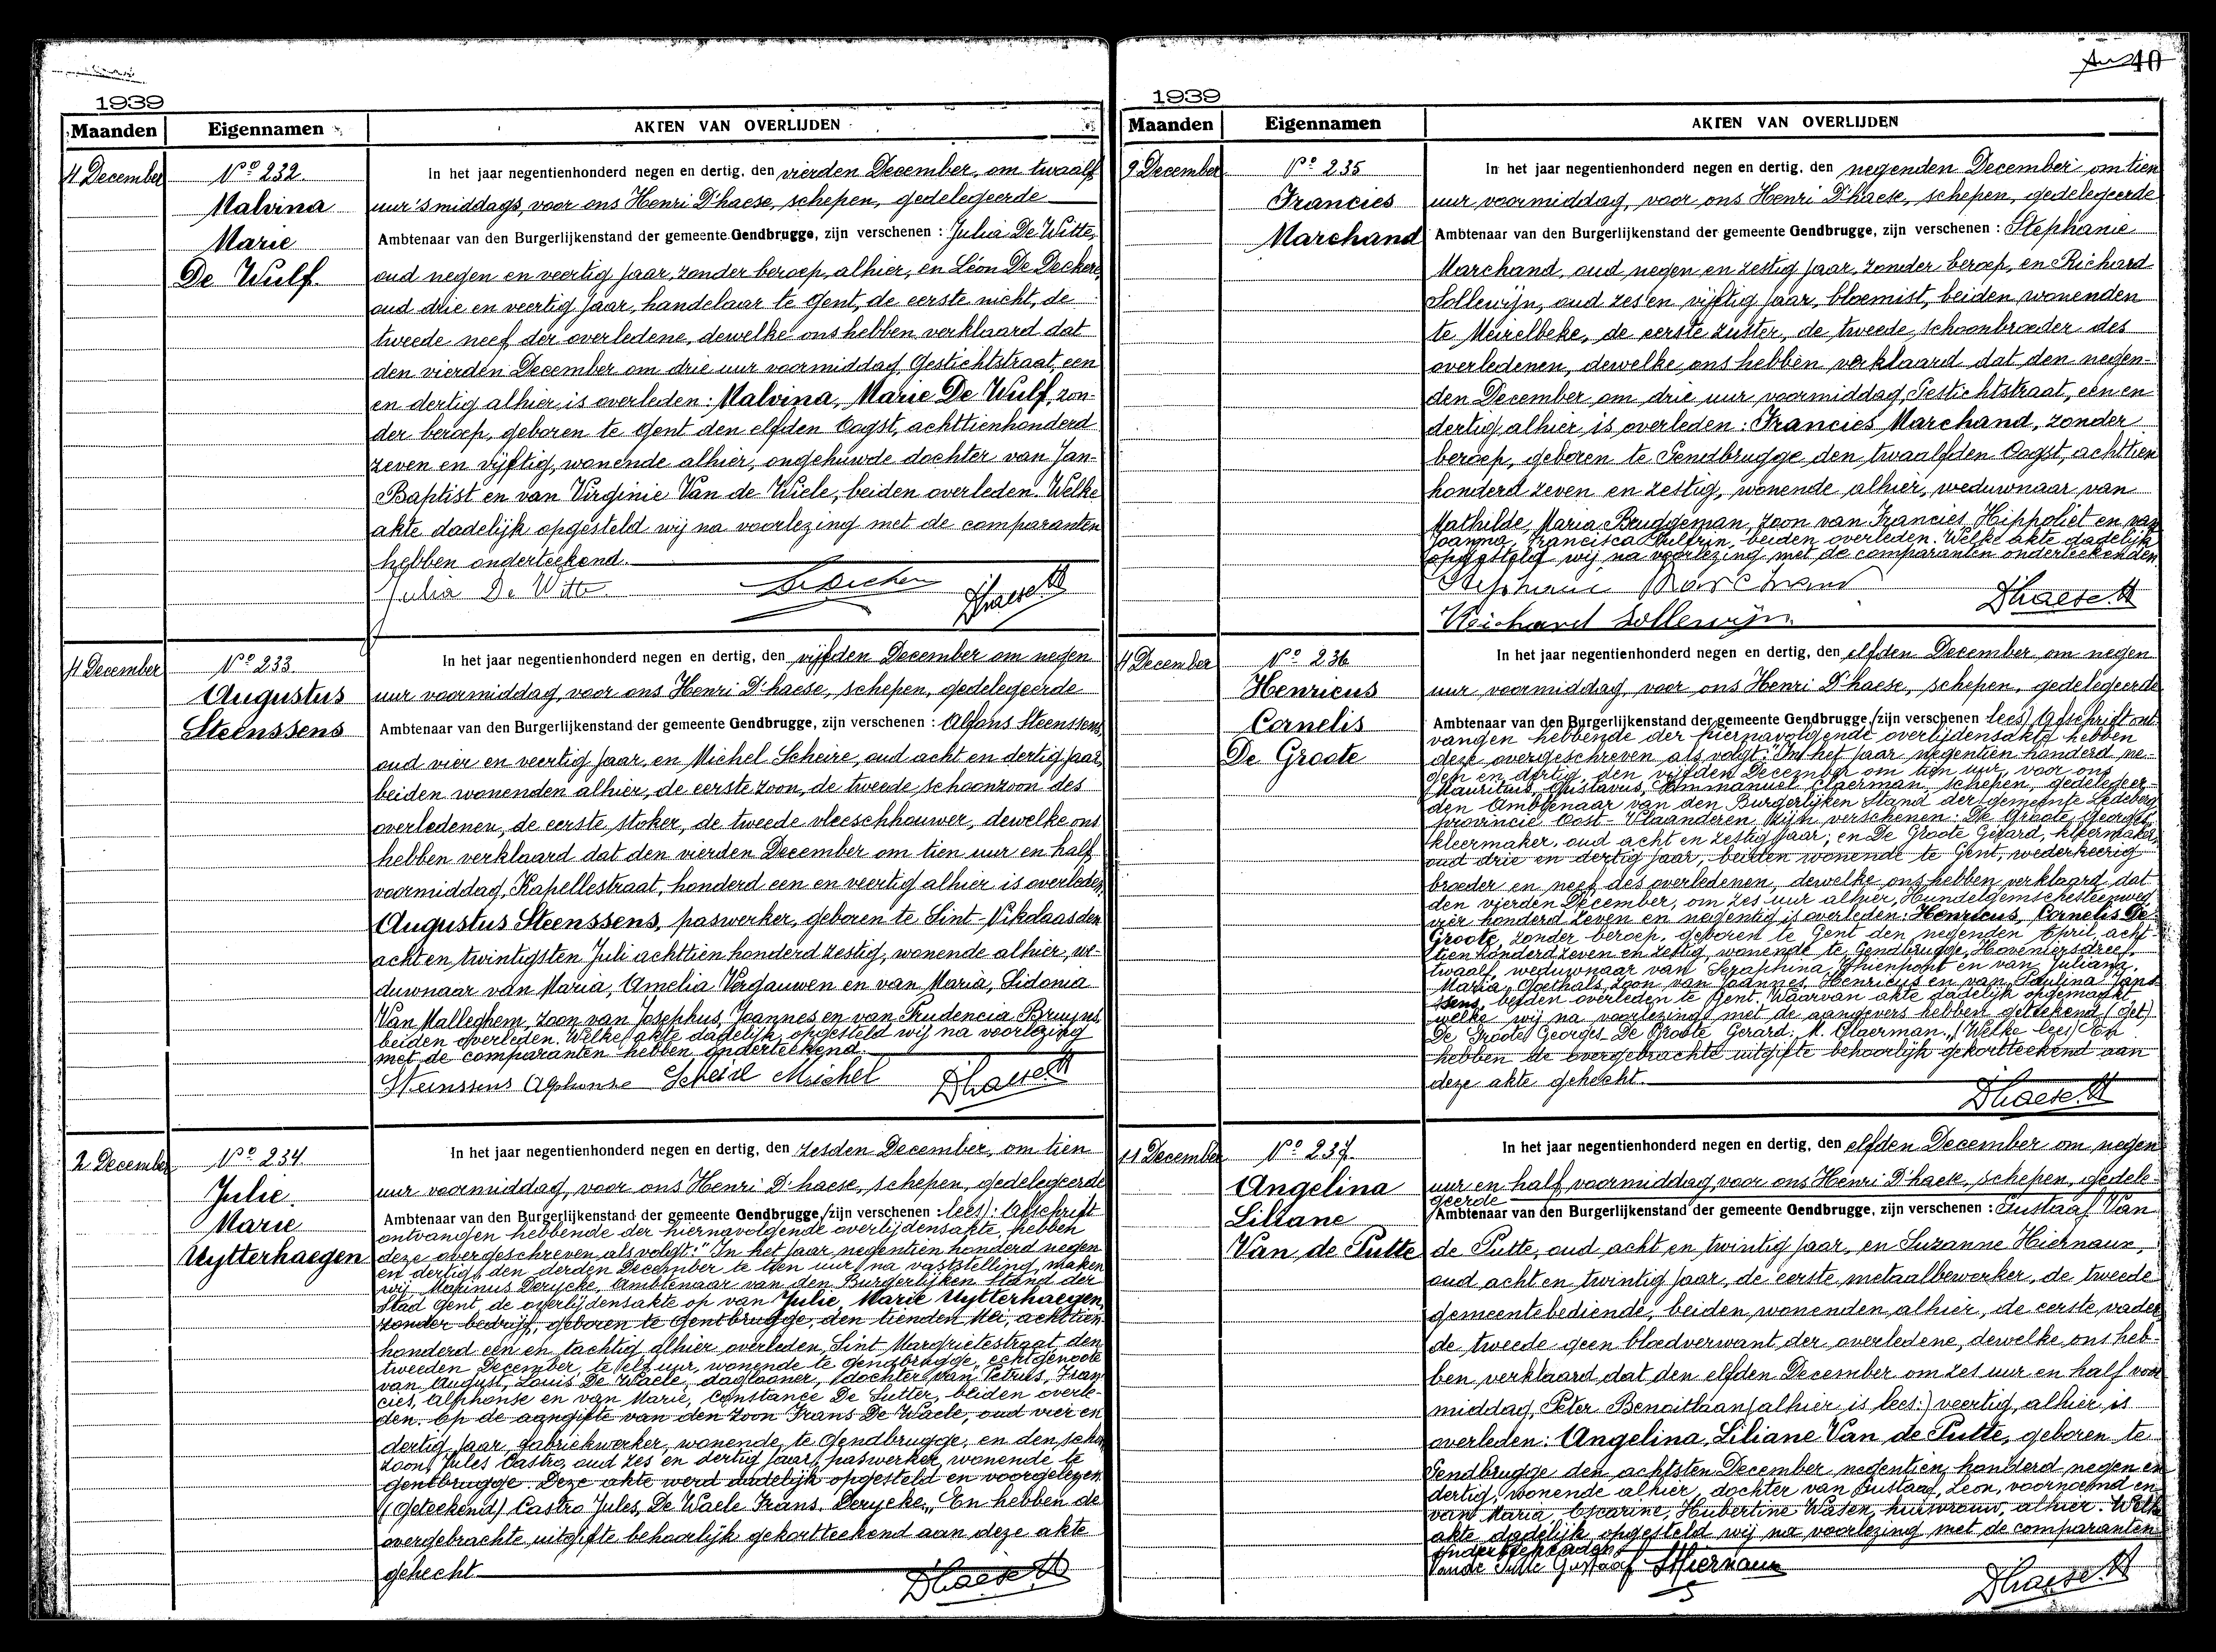 1939
Maanden Eigennamen AKTEN VAN OVERLIJDEN
4 December
No 232.
Malvina
Marie
De Wulf.
In het jaar negentienhonderd negen en dertig, den vierden December, om twaalf
uur 's middags, voor ons Henri D'haese, schepen, gedelegeerde
Ambtenaar van den Burgerlijkenstand der gemeente Gendbrugge, zijn verschenen : Julia De Witte,
oud negen en veertig jaar, zonder beroep, alhier, en Léon De Deckere,
oud drie en veertig jaar, handelaar te Gent, de eerste nicht, de
tweede neef der overledene, dewelke ons hebben verklaard dat
den vierden December om drie uur voormiddag, Gestichtstraat, een
en dertig alhier, is overleden : Malvina, Marie De Wulf, zon-
der beroep, geboren te Gent den elfden Oogst, achttienhonderd
zeven en vijftig, wonende alhier, ongehuwde dochter van Jan-
Baptist en van Virginie Van de Wiele, beiden overleden. Welke
akte dadelijk opgesteld wij na voorlezing met de comparanten
hebben onderteekend.
Julia De Witte D'haese H
4 December
No 233.
Augustus
Steenssens
In het jaar negentienhonderd negen en dertig, den vijfden December om negen
uur voormiddag, voor ons Henri D'haese, schepen, gedelegeerde
Ambtenaar van den Burgerlijkenstand der gemeente Gendbrugge, zijn verschenen : Alfons Steenssens,
oud vier en veertig jaar, en Michel Scheire, oud acht en dertig jaar,
beiden wonenden alhier, de eerste zoon, de tweede schoonzoon des
overledenen, de eerste stoker, de tweede vleeschhouwer, dewelke ons
hebben verklaard dat den vierden December om tien uur en half
voormiddag, Kapellestraat, honderd een en veertig alhier is overleden,
Augustus Steenssens, paswerker, geboren te Sint-Nikolaas den
acht en twintigsten Juli achttien honderd zestig, wonende alhier, we-
duwnaar van Maria, Amelia Vergauwen en van Maria, Sidonia
Van Malleghem, zoon van Josephus, Joannes en van Prudencia Bruyns,
beiden overleden. Welke akte dadelijk opgesteld wij na voorlezing
met de comparanten hebben onderteekend.
Steinssens Alphonse Scheire Michel D'haese H
2 December
No 234.
Julie
Marie
Uytterhaegen
In het jaar negentienhonderd negen en dertig, den zesden December, om tien
uur voormiddag, voor ons Henri D'haese, schepen, gedelegeerde
Ambtenaar van den Burgerlijkenstand der gemeente Gendbrugge, (zijn verschenen : lees) : Afschrift
ontvangen hebbende der hiernavolgende overlijdensakte, hebben
deze overgeschreven als volgt : "In het jaar negentien honderd negen
en dertig, den derden December te tien uur, na vaststelling, maken
wij, Marinus Derycke, Ambtenaar van den Burgerlijken Stand der
Stad Gent, de overlijdensakte op van Julie, Marie Uytterhaegen,
zonder bedrijf, geboren te Gentbrugge, den tienden Mei, achttien
honderd een en tachtig, alhier overleden, Sint Margrietestraat, den
tweeden December, te elf uur, wonende te Gendbrugge, echtgenoote
van August, Louis De Waele, daglooner, dochter van Petrus, Fran
cies, Alphonse en van Marie, Constance De Sutter, beiden overle-
den. Op de aangifte van den zoon Frans De Waele, oud vier en
dertig jaar, fabriekwerker, wonende te Gendbrugge, en den schoon
zoon, Jules Castro, oud zes en dertig jaar, paswerker, wonende te
Gentbrugge. Deze akte werd dadelijk opgesteld en voorgelezen
(Geteekend) Castro Jules, De Waele Frans, Derycke." En hebben de
overgebrachte uitgifte behoorlijk gekortteekend aan deze akte
gehecht.
D'haese H
40
1939
Maanden Eigennamen AKTEN VAN OVERLIJDEN
9 December
No 235
Francies
Marchand
In het jaar negentienhonderd negen en dertig, den negenden December om tien
uur voormiddag, voor ons Henri D'haese, schepen, gedelegeerde
Ambtenaar van den Burgerlijkenstand der gemeente Gendbrugge, zijn verschenen : Stephanie
Marchand, oud negen en zestig jaar, zonder beroep, en Richard
Sollewijn, oud zes en vijftig jaar, bloemist, beiden wonenden
te Meirelbeke, de eerste zuster, de tweede schoonbroeder des
overledenen, dewelke ons hebben verklaard dat den negen-
den December om drie uur voormiddag, Gestichtstraat, een en
dertig alhier is overleden : Francies Marchand, zonder
beroep, geboren te Gendbrugge den twaalfden Oogst, achttien
honderd zeven en zestig, wonende alhier, weduwnaar van
Mathilde, Maria Bruggeman, zoon van Francies Hippoliet en van
Joanna, Francisca beiden overleden. Welke akte dadelijk
opgesteld wij na voorlezing met de comparanten onderteekenden
Stephanie Marchand D'haese H
Reichard Sollewijn
4 December
No 236
Henricus
Cornelis
De Groote
In het jaar negentienhonderd negen en dertig, den elfden December om negen
uur voormiddag, voor ons Henri D'haese, schepen, gedelegeerde
Ambtenaar van den Burgerlijkenstand der gemeente Gendbrugge, (zijn verschenen lees) Afschrift ont-
vangen hebbende der hiernavolgende overlijdensakte hebben
deze overgeschreven als volgt : "In het jaar negentien honderd ne-
gen en dertig, den vijfden December om tien uur, voor ons
Mauritius, Gustavus, Emmanuel Claerman, schepen, gedelegeer-
den Ambtenaar van den Burgerlijken Stand der gemeente Ledeberg
provincie Oost-Vlaanderen, zijn verschenen : De Groote, Georges
kleermaker, oud acht en zestig jaar; en De Groote Gerard, kleermaker,
oud drie en dertig jaar, beiden wonende te Gent, wederkeerig
broeder en neef des overledenen, dewelke ons hebben verklaard dat
den vierden December, om zes uur alhier, Hundelgemschesteenweg,
vier honderd zeven en negentig is overleden : Henricus, Cornelis De
Groote, zonder beroep, geboren te Gent den negenden April acht-
tien honderd zeven en zestig, wonende te Gendbrugge, Hoveniersdreef,
twaalf, weduwnaar van Seraphina, Thienpont en van Juliana,
Maria Goethals, zoon van Joannes, Henricus en van Paulina Jans
ssens, beiden overleden te Gent. Waarvan akte dadelijk opgemaakt
welke wij na voorlezing met de aangevers hebben geteekend (get)
De Groote Georges, De Groote Gerard; M. Claerman." (Welke lees) En
hebben de overgebrachte uitgifte behoorlijk gekortteekend aan
deze akte gehecht.
D'haese H
11 December
No 237.
Angelina
Liliane
Van de Putte
In het jaar negentienhonderd negen en dertig, den elfden December om negen
uur en half voormiddag, voor ons Henri D'haese, schepen, gedele-
geerde
Ambtenaar van den Burgerlijkenstand der gemeente Gendbrugge, zijn verschenen : Gustaaf Van
de Putte, oud acht en twintig jaar, en Suzanne Hiernaux,
oud acht en twintig jaar, de eerste metaalbewerker, de tweede
gemeentebediende, beiden wonenden alhier, de eerste vader,
de tweede geen bloedverwant der overledene, dewelke ons heb-
ben verklaard dat den elfden December om zes uur en half voor
middag, Peter Benoitlaan (alhier is lees:) veertig, alhier is
overleden : Angelina, Liliane Van de Putte, geboren te
Gendbrugge den achtsten December negentien honderd negen en
dertig, wonende alhier, dochter van Gustaaf, Leon, voornoemd en
van Maria, Oscarine, Hubertine Waser, huisvrouw, alhier. Welke
akte dadelijk opgesteld wij na voorlezing met de comparanten
onderteekenden
Vande Putte Gustaaf SHiernaux D'haese H